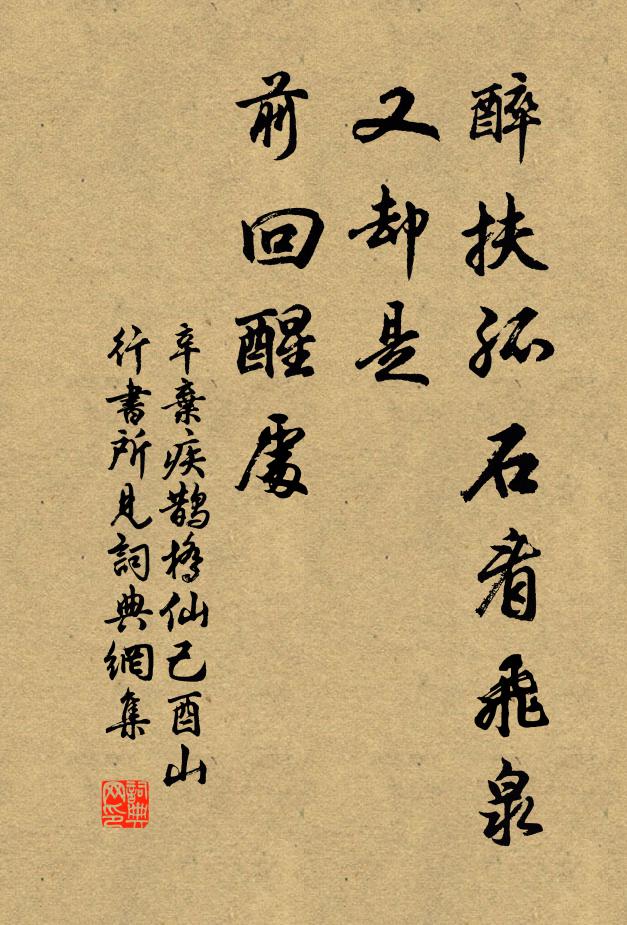 醉扶孤石看飛泉
又却是
前回醒處
辛棄疾鵲橋仙己酉山
行書所見詞典網集
詞典
网印